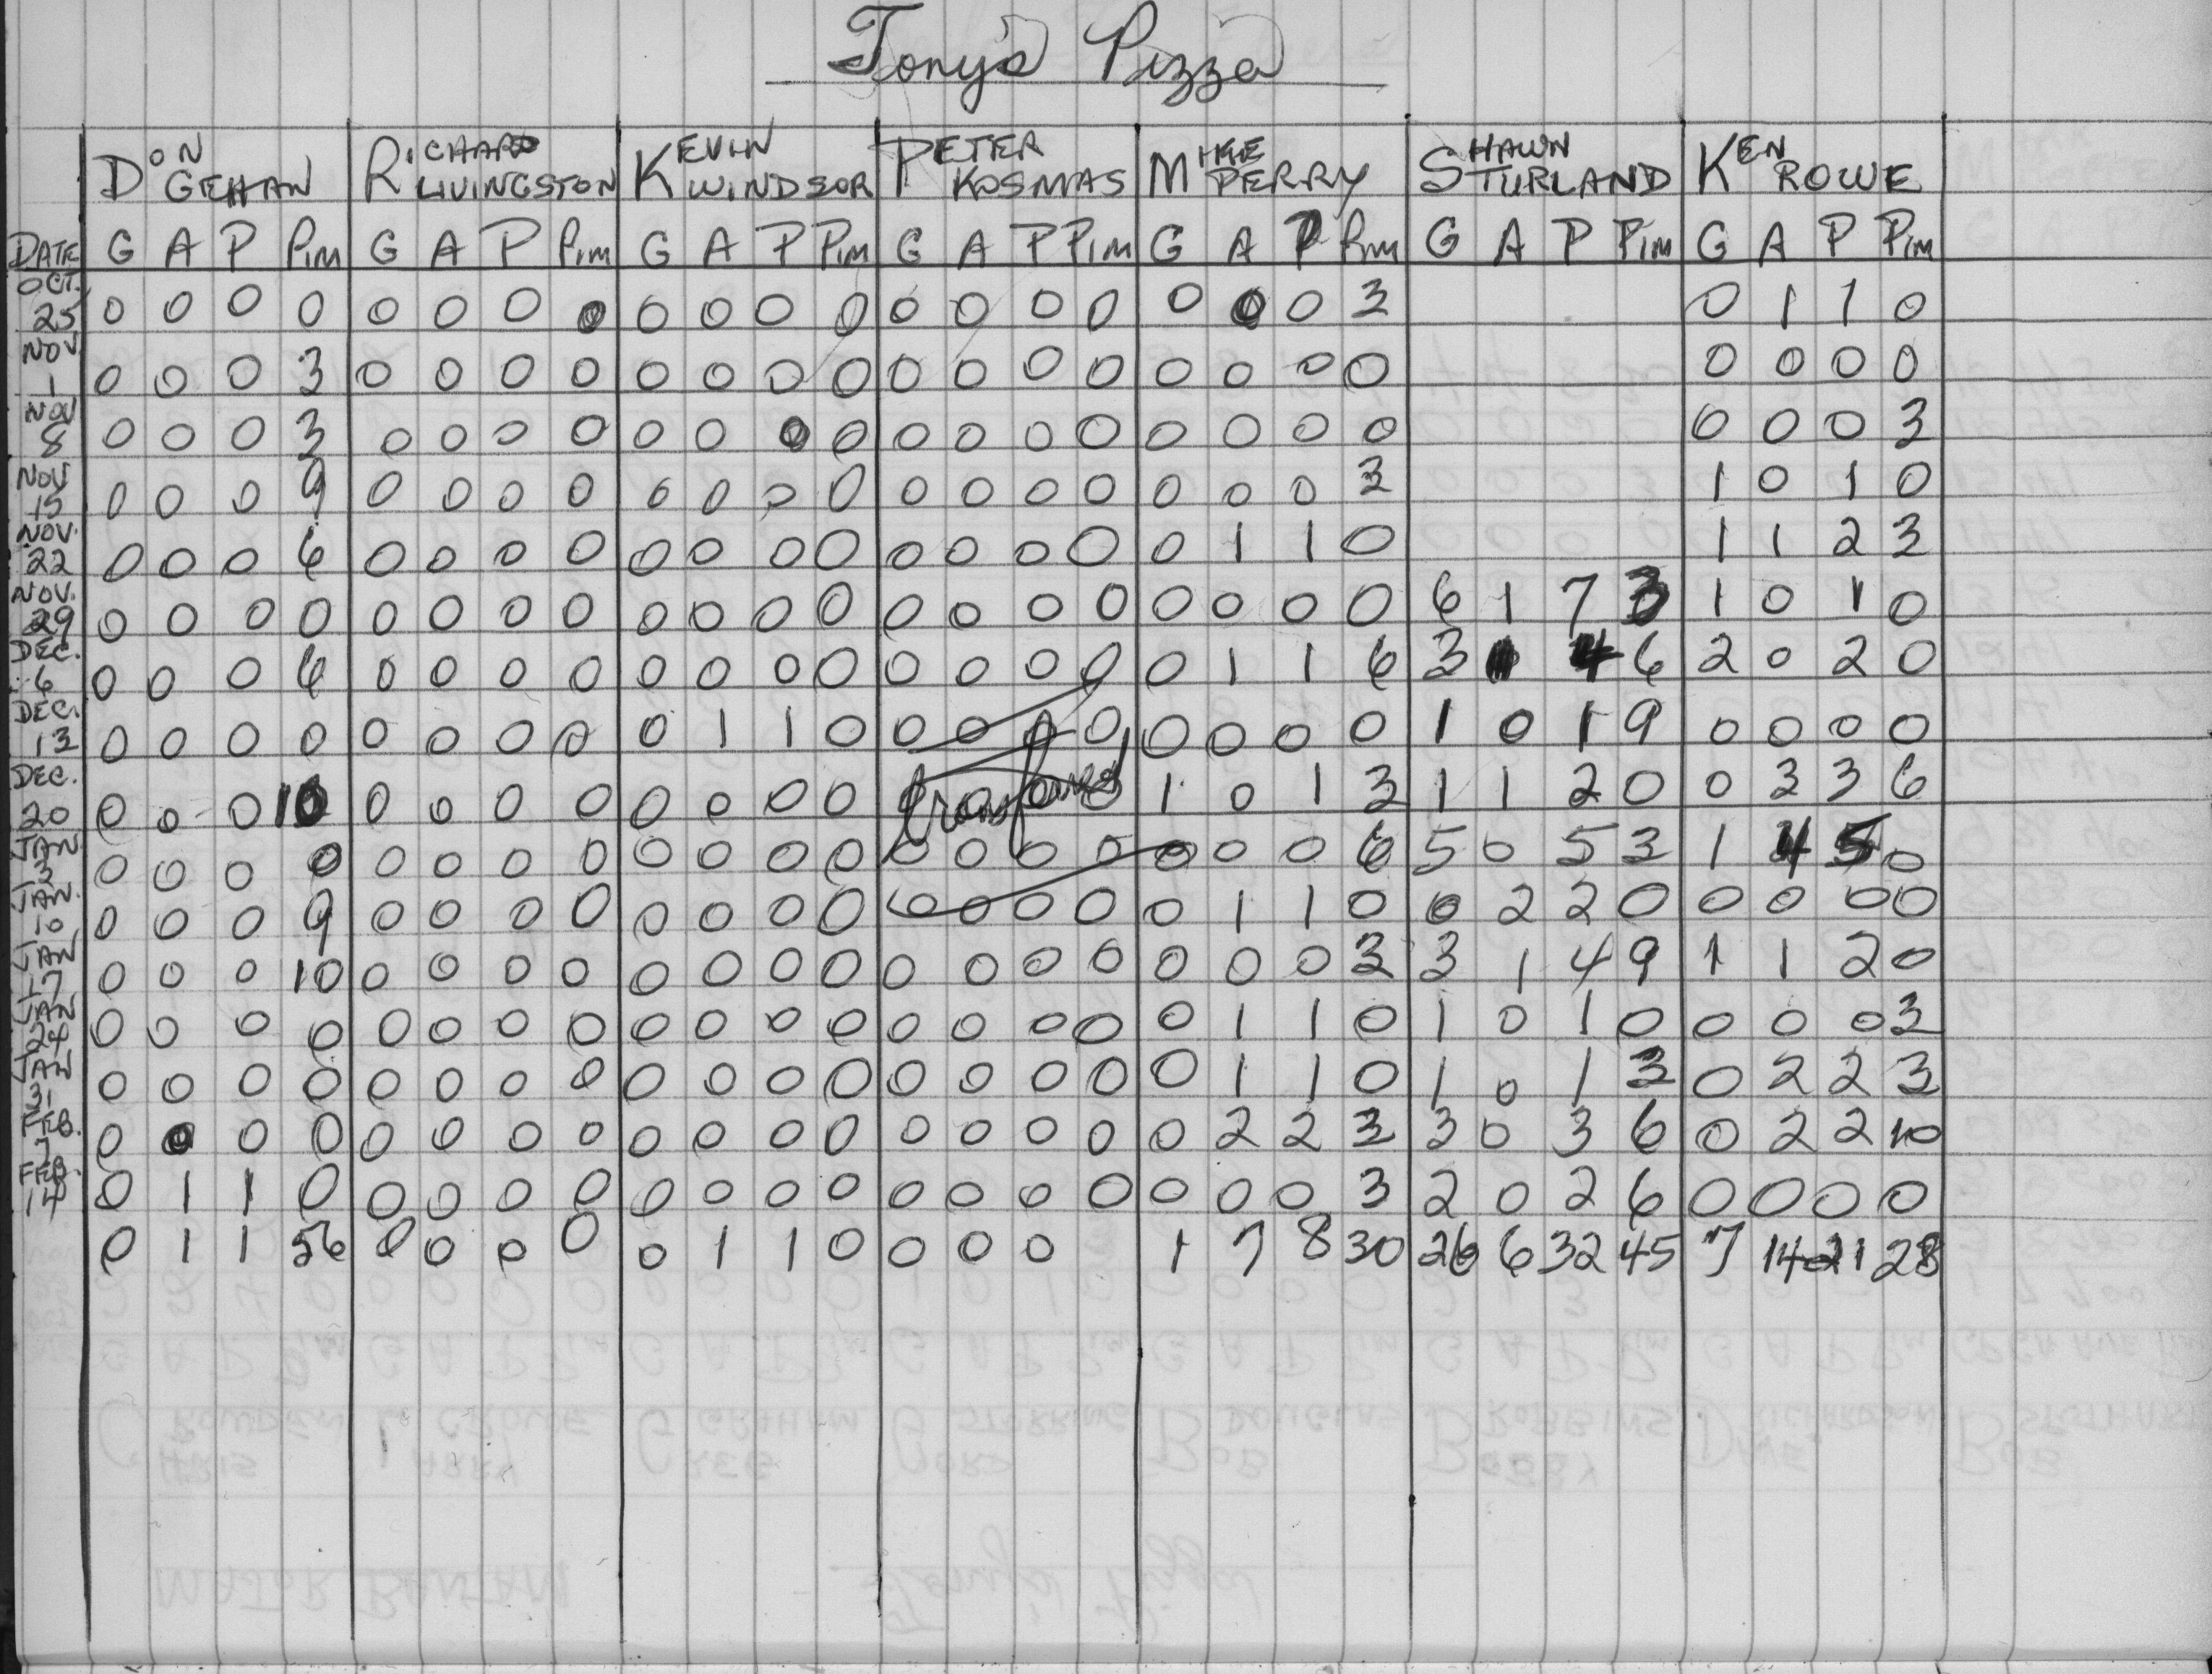 Tony's Pizza
DON GEHAN RICHARD LIVINGSTON KEVIN WINDSOR PETER KOSMAS MIKE PERRY SHAWN STURLAND KEN ROWE
DATE G A P Pim G A P Pim G A P Pim G A P Pim G A P Pim G A P Pim G A P Pim
OCT. 25 0 0 0 0 0 0 0 0 0 0 0 0 0 0 0 0 0 0 0 3 0 1 1 0
NOV 1 0 0 0 3 0 0 0 0 0 0 0 0 0 0 0 0 0 0 0 0 0 0 0 0
NOV 8 0 0 0 3 0 0 0 0 0 0 0 0 0 0 0 0 0 0 0 0 0 0 0 3
NOV 15 0 0 0 9 0 0 0 0 0 0 0 0 0 0 0 0 0 0 0 3 1 0 1 0
NOV. 22 0 0 0 6 0 0 0 0 0 0 0 0 0 0 0 0 0 1 1 0 1 1 2 3
NOV. 29 0 0 0 0 0 0 0 0 0 0 0 0 0 0 0 0 0 0 0 0 6 1 7 3 1 0 1 0
DEC. 6 0 0 0 6 0 0 0 0 0 0 0 0 0 0 0 0 0 1 1 6 3 1 4 6 2 0 2 0
DEC. 13 0 0 0 0 0 0 0 0 0 1 1 0 0 0 0 0 0 0 0 0 1 0 1 9 0 0 0 0
DEC. 20 0 0 0 10 0 0 0 0 0 0 0 0 transferred 1 0 1 3 1 1 2 0 0 3 3 6
JAN 3 0 0 0 0 0 0 0 0 0 0 0 0 0 0 0 0 0 0 0 6 5 0 5 3 1 4 5 0
JAN. 10 0 0 0 9 0 0 0 0 0 0 0 0 0 0 0 0 0 1 1 0 0 2 2 0 0 0 0 0
JAN 17 0 0 0 10 0 0 0 0 0 0 0 0 0 0 0 0 0 0 0 3 3 1 4 9 1 1 2 0
JAN 24 0 0 0 0 0 0 0 0 0 0 0 0 0 0 0 0 0 1 1 0 1 0 1 0 0 0 0 3
JAN 31 0 0 0 0 0 0 0 0 0 0 0 0 0 0 0 0 0 1 1 0 1 0 1 3 0 2 2 3
FEB. 7 0 0 0 0 0 0 0 0 0 0 0 0 0 0 0 0 0 2 2 3 3 0 3 6 0 2 2 10
FEB. 14 0 1 1 0 0 0 0 0 0 0 0 0 0 0 0 0 0 0 0 3 2 0 2 6 0 0 0 0
0 1 1 56 0 0 0 0 0 1 1 0 0 0 0 1 7 8 30 26 6 32 45 7 14 21 28